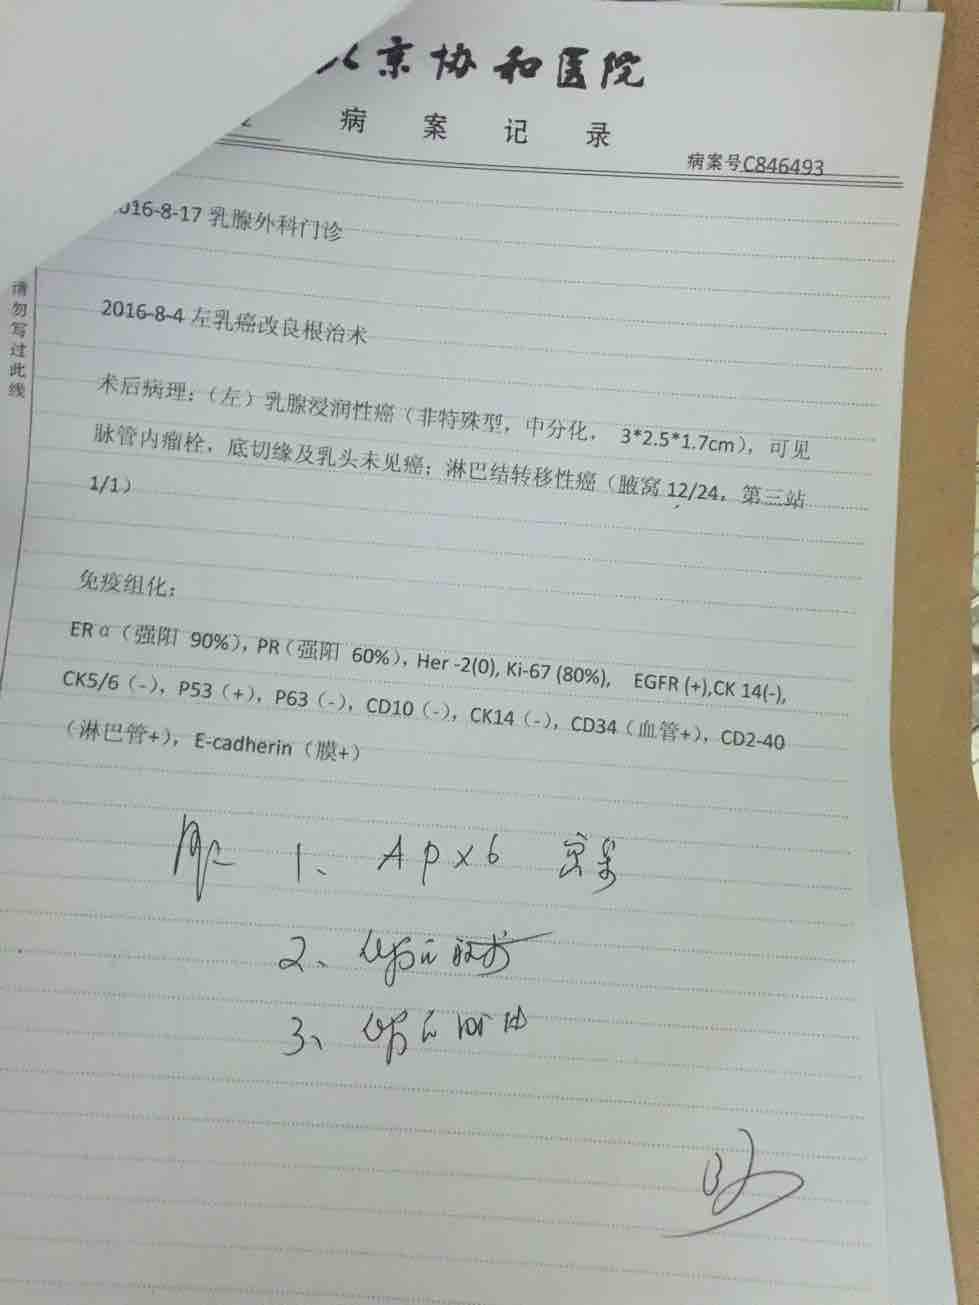 京协和医院
病案记录
病案号C846493
16-8-17 乳腺外科门诊
请勿写过此线
2016-8-4 左乳癌改良根治术
术后病理：（左）乳腺浸润性癌（非特殊型，中分化， 3*2.5*1.7cm），可见
脉管内瘤栓，底切缘及乳头未见癌；淋巴结转移性癌（腋窝 12/24，第三站
1/1）
免疫组化：
ERα（强阳 90%），PR（强阳 60%），Her -2(0), Ki-67 (80%), EGFR (+),CK 14(-),
CK5/6（-），P53（+），P63（-），CD10（-），CK14（-），CD34（血管+），CD2-40
（淋巴管+），E-cadherin（膜+）
1、 AP×6
2、
3、